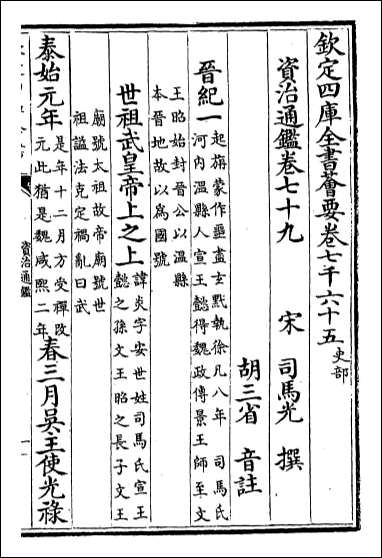 欽定四庫全書薈要卷七千六十五 史部
資治通鑑卷七十九
宋 司馬光 撰
胡三省 音註
晉紀一 起旃蒙作噩盡玄黓執徐凡八年 司馬氏
河内温縣人宣王懿得魏政傳景王師至文
王昭始封晉公以温縣
本晉地故以為國號
世祖武皇帝上之上 諱炎字安世姓司馬氏宣王
懿之孫文王昭之長子文王
廟號太祖故帝廟號世
祖諡法克定禍亂曰武
泰始元年 是年十二月方受禪改
元此猶是魏咸熙二年 春三月吳王使光祿
資治通鑑
一